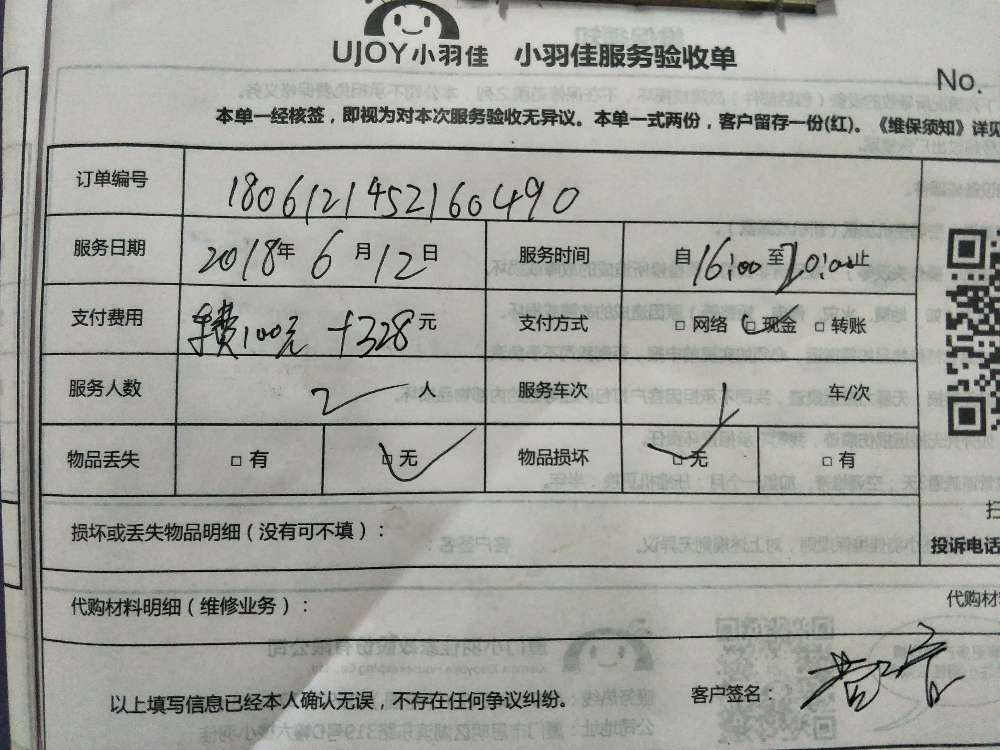 UJOY小羽佳 小羽佳服务验收单
No.
本单一经核签，即视为对本次服务验收无异议。本单一式两份，客户留存一份(红)。《维保须知》详见
订单编号 1806121452160490
服务日期 2018年 6月12日 服务时间 自16:00至20:00止
支付费用 100元 +328元 支付方式 □网络 □现金 □转账
服务人数 2人 服务车次 1 车/次
物品丢失 □有 □无 物品损坏 □无 □有
损坏或丢失物品明细（没有可不填）：
扫
投诉电话
代购材料明细（维修业务）：
代购材
以上填写信息已经本人确认无误，不存在任何争议纠纷。 客户签名：